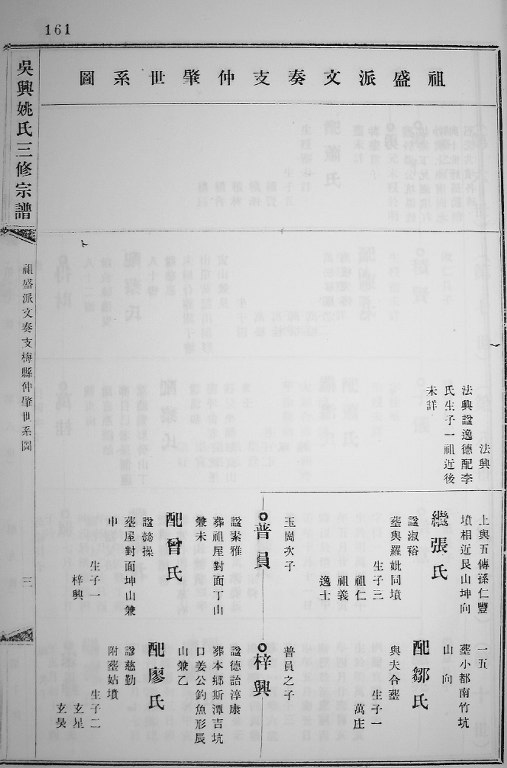 161
祖盛派文奏支仲肇世系圖
吳興姚氏三修宗譜
祖盛派文奏支梅縣仲肇世系圖
三
法興
法興諡逸德配李
氏生子一祖近後
未詳
上與五傳孫仁豐
墳相近艮山坤向
繼張氏
諡淑裕
墓與羅妣同墳
生子三
祖仁
祖義
逸士
玉崗次子
普員
諡素雅
葬祖屋對面丁山
兼未
配曾氏
諡懿操
墓屋對面坤山兼
申
生子一
梓興
一五
墓小都南竹坑
山向
配鄒氏
與夫合墓
生子一
萬庄
普員之子
梓興
諡德詒淳康
葬本鄉斯潭吉坑
口姜公釣魚形辰
山兼乙
配廖氏
諡慈勤
附墓姑墳
生子二
玄星
玄昊